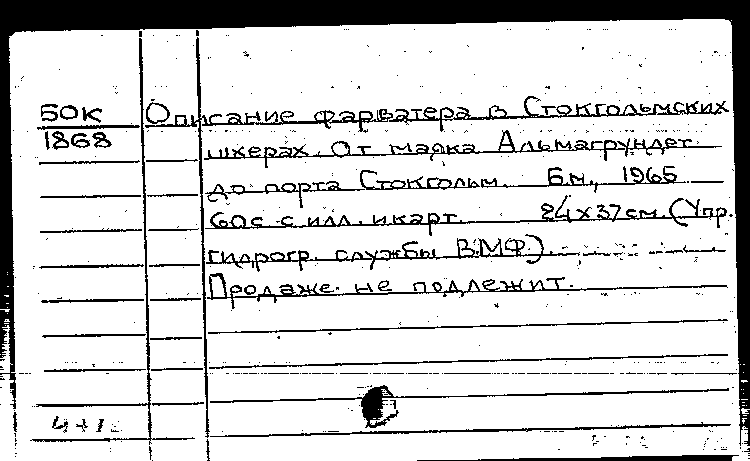 БОК
1868
Описание фарватера в Стокгольмских
шхерах. От маяка Альмагрундет
до порта Стокгольм. Б.м., 1965
60с с илл. и карт. 24х37см. (Упр.
гидрогр. службы ВМФ).
Продаже не подлежит.